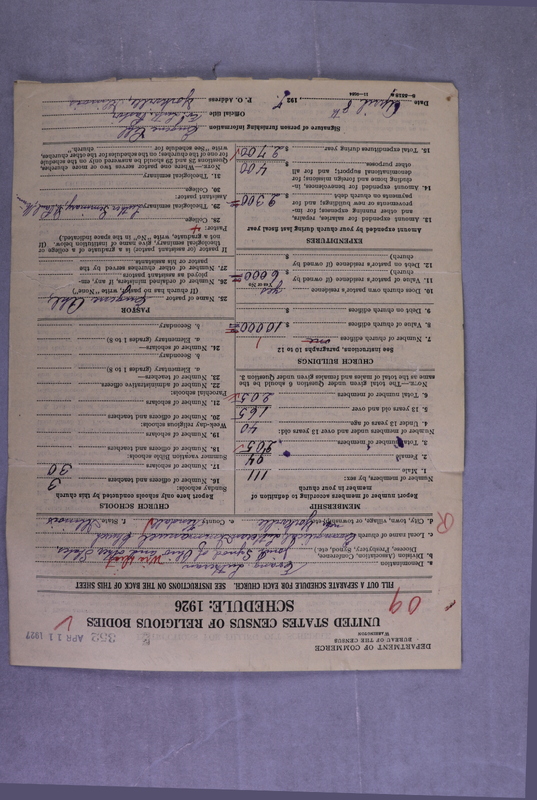 DEPARTMENT OF COMMERCE
BUREAU OF THE CENSUS
WASHINGTON
352 APR 11 1927
UNITED STATES CENSUS OF RELIGIOUS BODIES
SCHEDULE: 1926
09
FILL OUT A SEPARATE SCHEDULE FOR EACH CHURCH. SEE INSTRUCTIONS ON THE BACK OF THIS SHEET
a. Denomination Evang. Lutheran
b. Division (Association, Conference, Diocese, Presbytery, Synod, etc.) Joint Synod of Ohio and other States
c. Local name of church Evangelical Lutheran Church
d. City, town, village, or township Yorkville e. County Kendall f. State Illinois
MEMBERSHIP
Report number of members according to definition of member in your church
Number of members, by sex:
1. Male 111
2. Female 94
3. Total number of members 205
Number of members under and over 13 years old:
4. Under 13 years of age 40
5. 13 years old and over 165
6. Total number of members 205
NOTE.—The total given under Question 6 should be the same as the total of males and females given under Question 3.
CHURCH BUILDINGS
See instructions, paragraphs 10 to 12
7. Number of church edifices one 1
8. Value of church edifices $ 10000
9. Debt on church edifices $
10. Does church own pastor's residence yes
(Yes or No)
11. Value of pastor's residence (if owned by church) $ 6000
12. Debt on pastor's residence (if owned by church) $
EXPENDITURES
Amount expended by your church during last fiscal year
13. Amount expended for salaries, repairs, and other running expenses; for improvements or new buildings; and for payments on church debt $ 2300
14. Amount expended for benevolences, including home and foreign missions; for denominational support; and for all other purposes $ 400
15. Total expenditures during year $ 2700
CHURCH SCHOOLS
Report here only schools conducted by this church
Sunday schools:
16. Number of officers and teachers 3
17. Number of scholars 30
Summer vacation Bible schools:
18. Number of officers and teachers
19. Number of scholars
Week-day religious schools:
20. Number of officers and teachers
21. Number of scholars
Parochial schools:
22. Number of administrative officers
23. Number of teachers
a. Elementary (grades 1 to 8)
b. Secondary
24. Number of scholars—
a. Elementary (grades 1 to 8)
b. Secondary
PASTOR
25. Name of pastor Eugene Ahl
(If church has no pastor, write "None")
26. Number of ordained ministers, if any, employed as assistant pastors
27. Number of other churches served by the pastor or his assistants
If pastor or assistant pastor is a graduate of a college or theological seminary, give name of institution below. (If not a graduate, write "No" in the space indicated.)
Pastor: 4
28. College
29. Theological seminary Luther Seminary, St. Paul, Minn.
Assistant pastor:
30. College
31. Theological seminary
NOTE.—Where one pastor serves two or more churches, Questions 28 and 29 should be answered only on the schedule for one of the churches; on the schedule for the other churches, write "See schedule for church."
Signature of person furnishing information Eugene Ahl
Official title Ev. Luth. Pastor
Date April 8th, 1927. P. O. Address Yorkville, Illinois